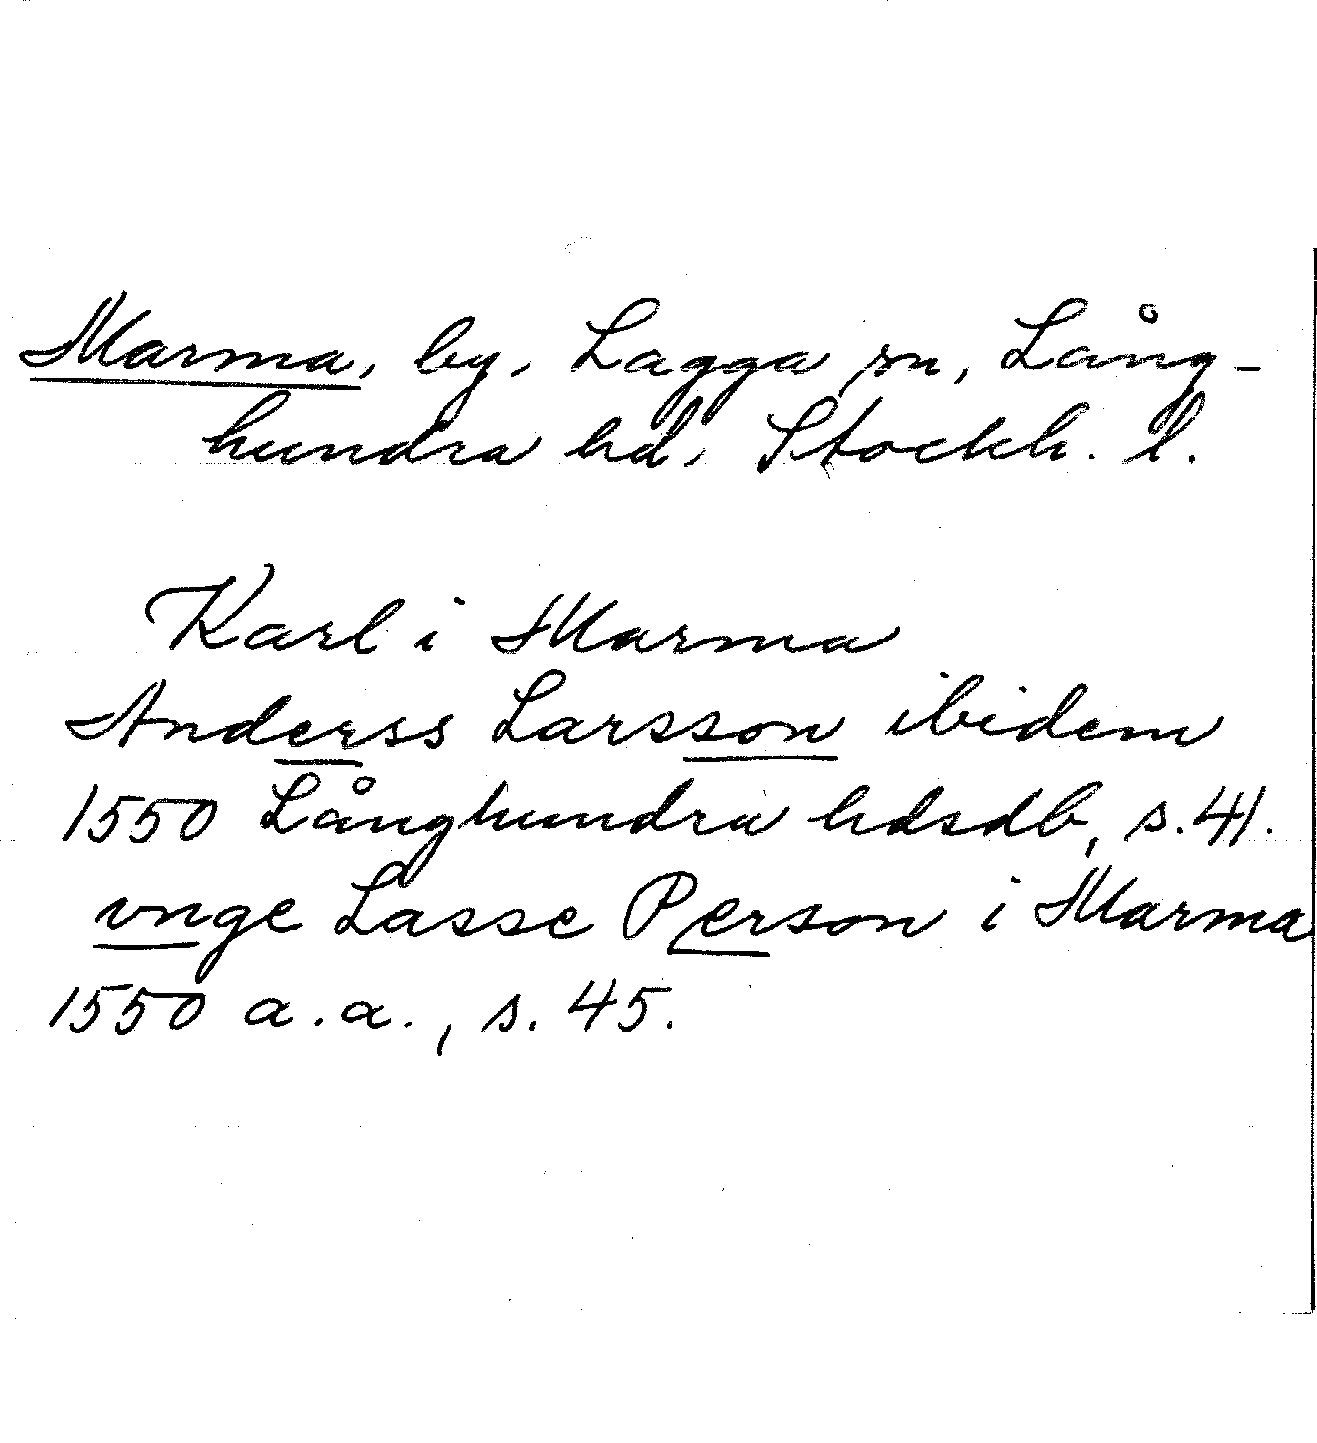 Marma, by, Lagga sn, Lång-
hundra hd, Stockh. l.
Karl i Marma
Anderss Larsson ibidem
1550 Långhundra hdsdb, s. 41.
vnge Lasse Person i Marma
1550 a.a., s. 45.